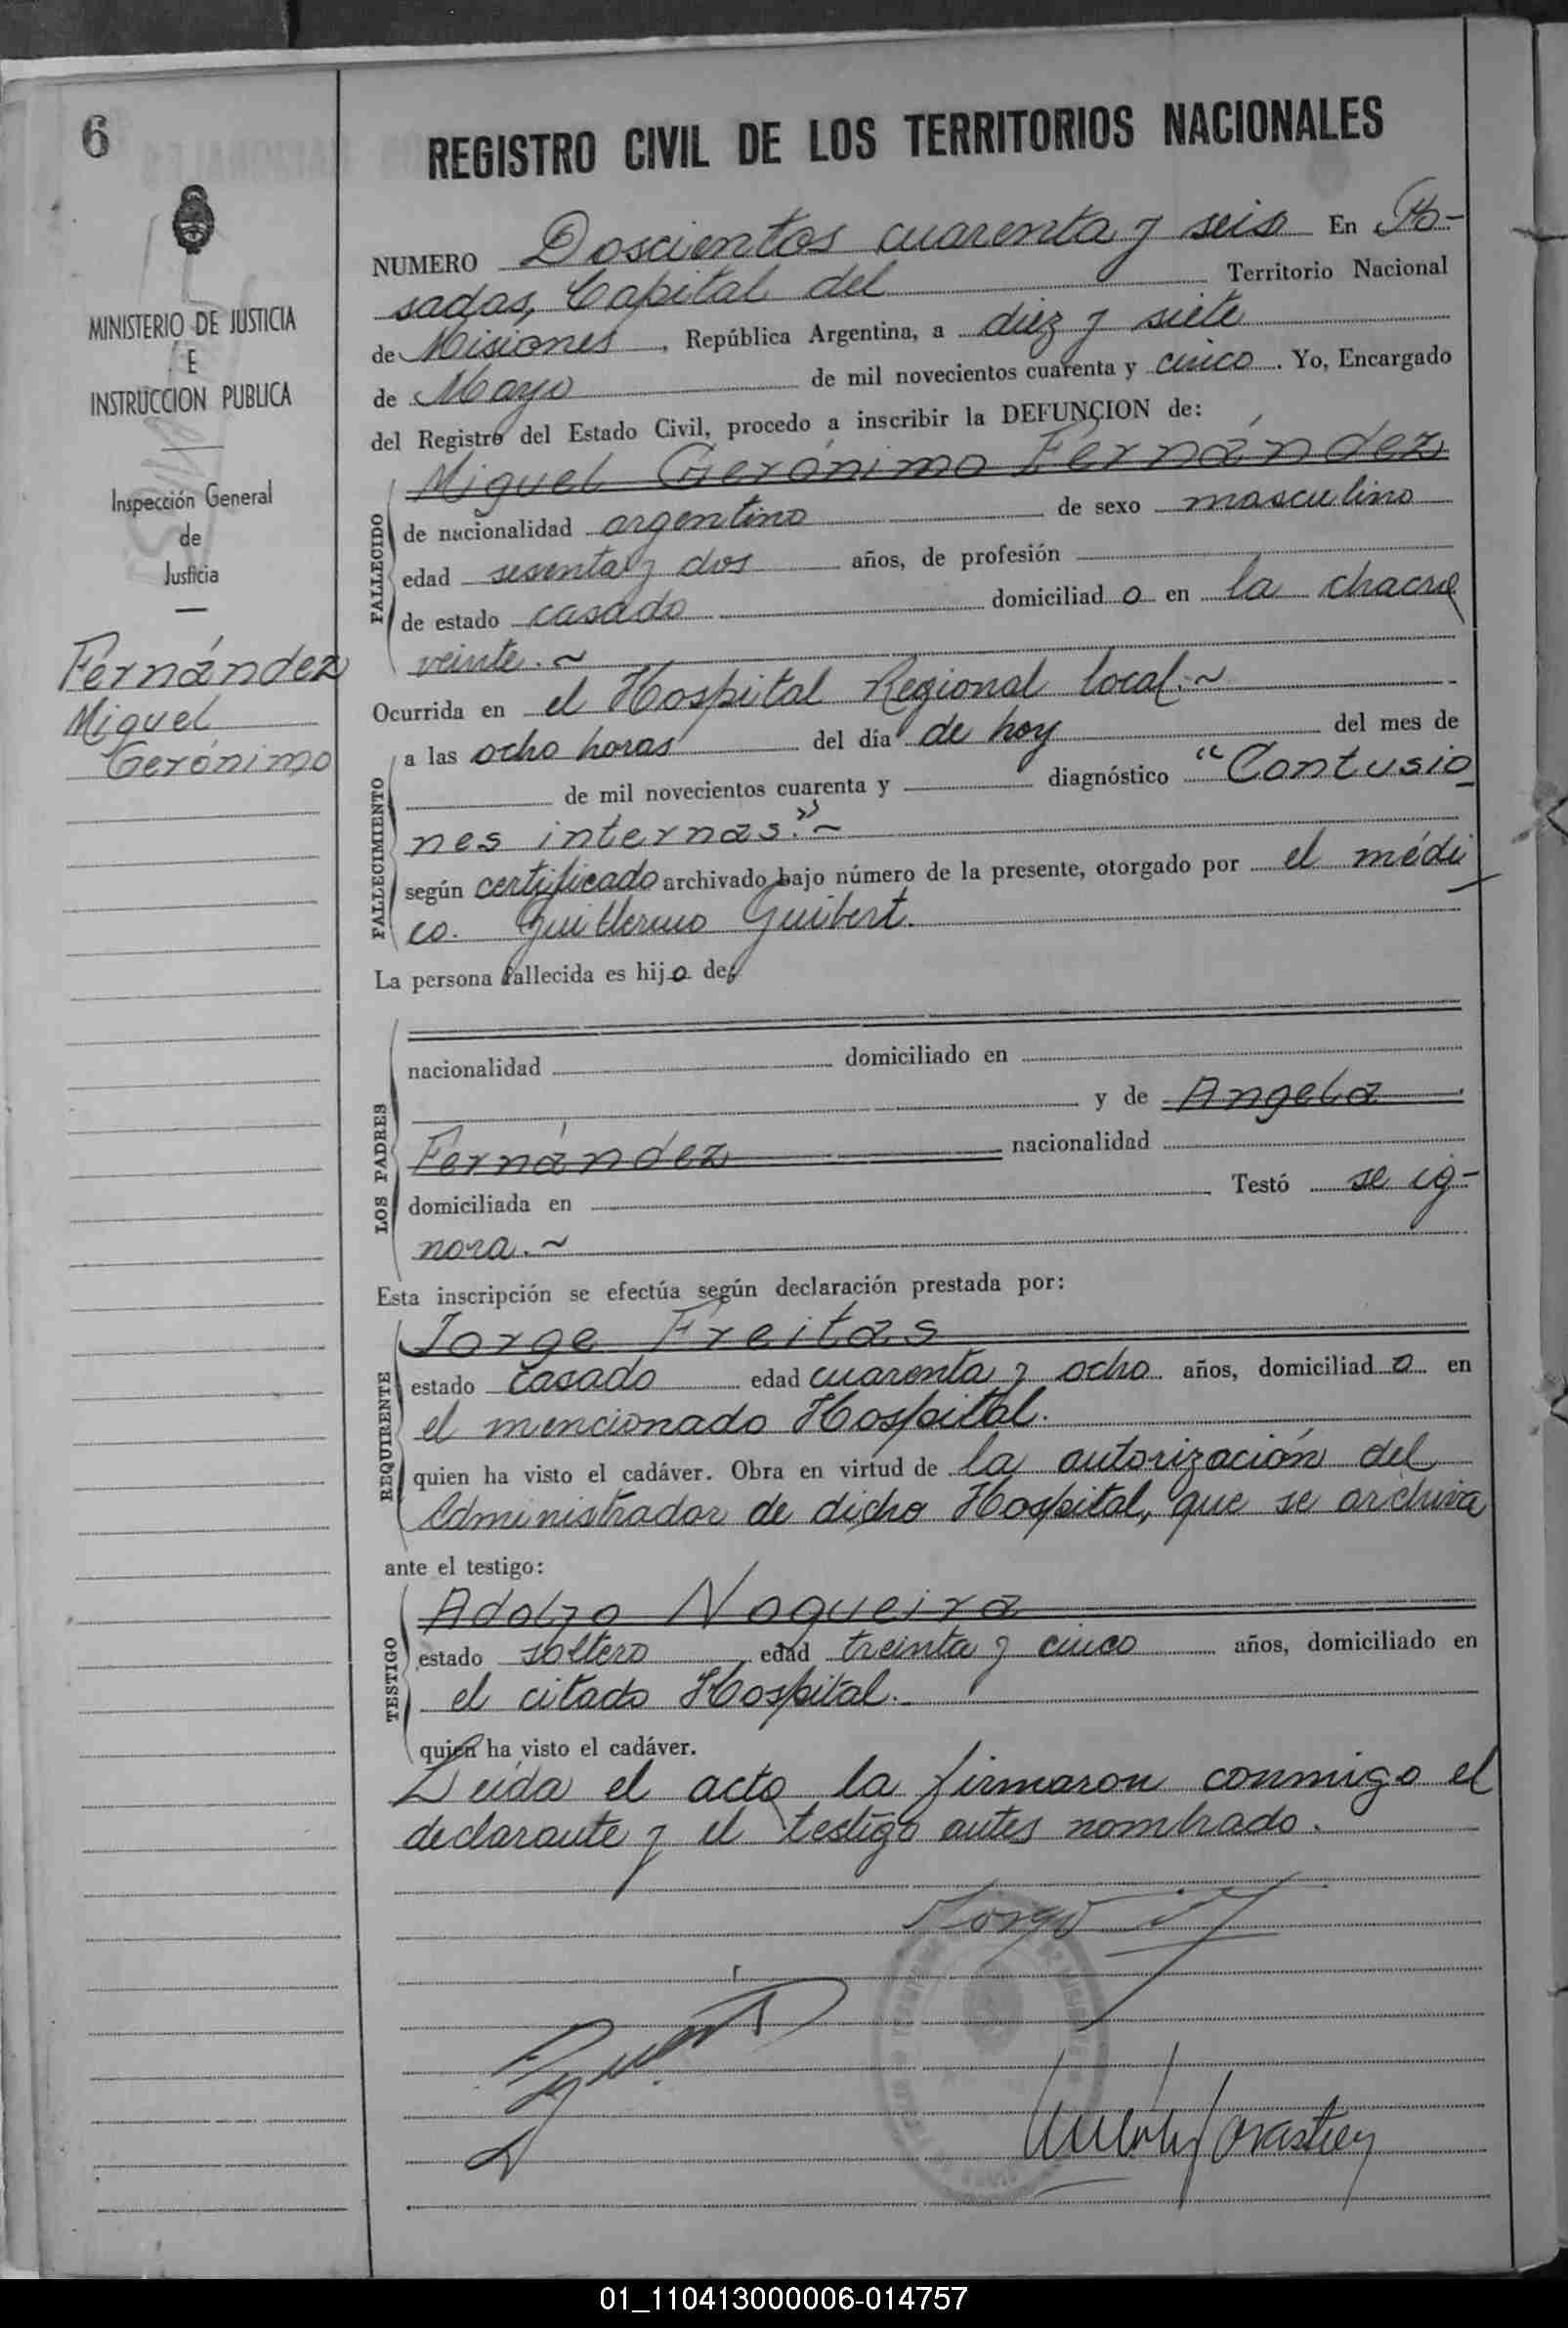 6
MINISTERIO DE JUSTICIA
E
INSTRUCCION PUBLICA
Inspección General
de
Justicia
Fernández
Miguel
Gerónimo
REGISTRO CIVIL DE LOS TERRITORIOS NACIONALES
NUMERO Doscientos cuarenta y seis En Po-
sadas, Capital del Territorio Nacional
de Misiones, República Argentina, a diez y siete
de Mayo de mil novecientos cuarenta y cinco. Yo, Encargado
del Registro del Estado Civil, procedo a inscribir la DEFUNCION de:
Miguel Gerónimo Fernández
FALLECIDO
de nacionalidad argentino de sexo masculino
edad sesenta y dos años, de profesión
de estado casado domiciliado en la chacra
veinte.~
Ocurrida en el Hospital Regional local.~
FALLECIMIENTO
a las ocho horas del día de hoy del mes de
de mil novecientos cuarenta y diagnóstico "Contusio
nes internas."~
según certificado archivado bajo número de la presente, otorgado por el médi
co. Guillermo Guibert.
La persona fallecida es hijo de
LOS PADRES
nacionalidad domiciliado en
y de Angela
Fernández nacionalidad
domiciliada en Testó se ig-
nora.~
Esta inscripción se efectúa según declaración prestada por:
REQUIRENTE
Jorge Freitas
estado casado edad cuarenta y ocho años, domiciliado en
el mencionado Hospital.
quien ha visto el cadáver. Obra en virtud de la autorización del
Administrador de dicho Hospital, que se archiva
ante el testigo:
TESTIGO
Adolfo Nogueira
estado soltero edad treinta y cinco años, domiciliado en
el citado Hospital.
quien ha visto el cadáver.
Leída el acta la firmaron conmigo el
declarante y el testigo antes nombrado.
Jorge
01_110413000006-014757